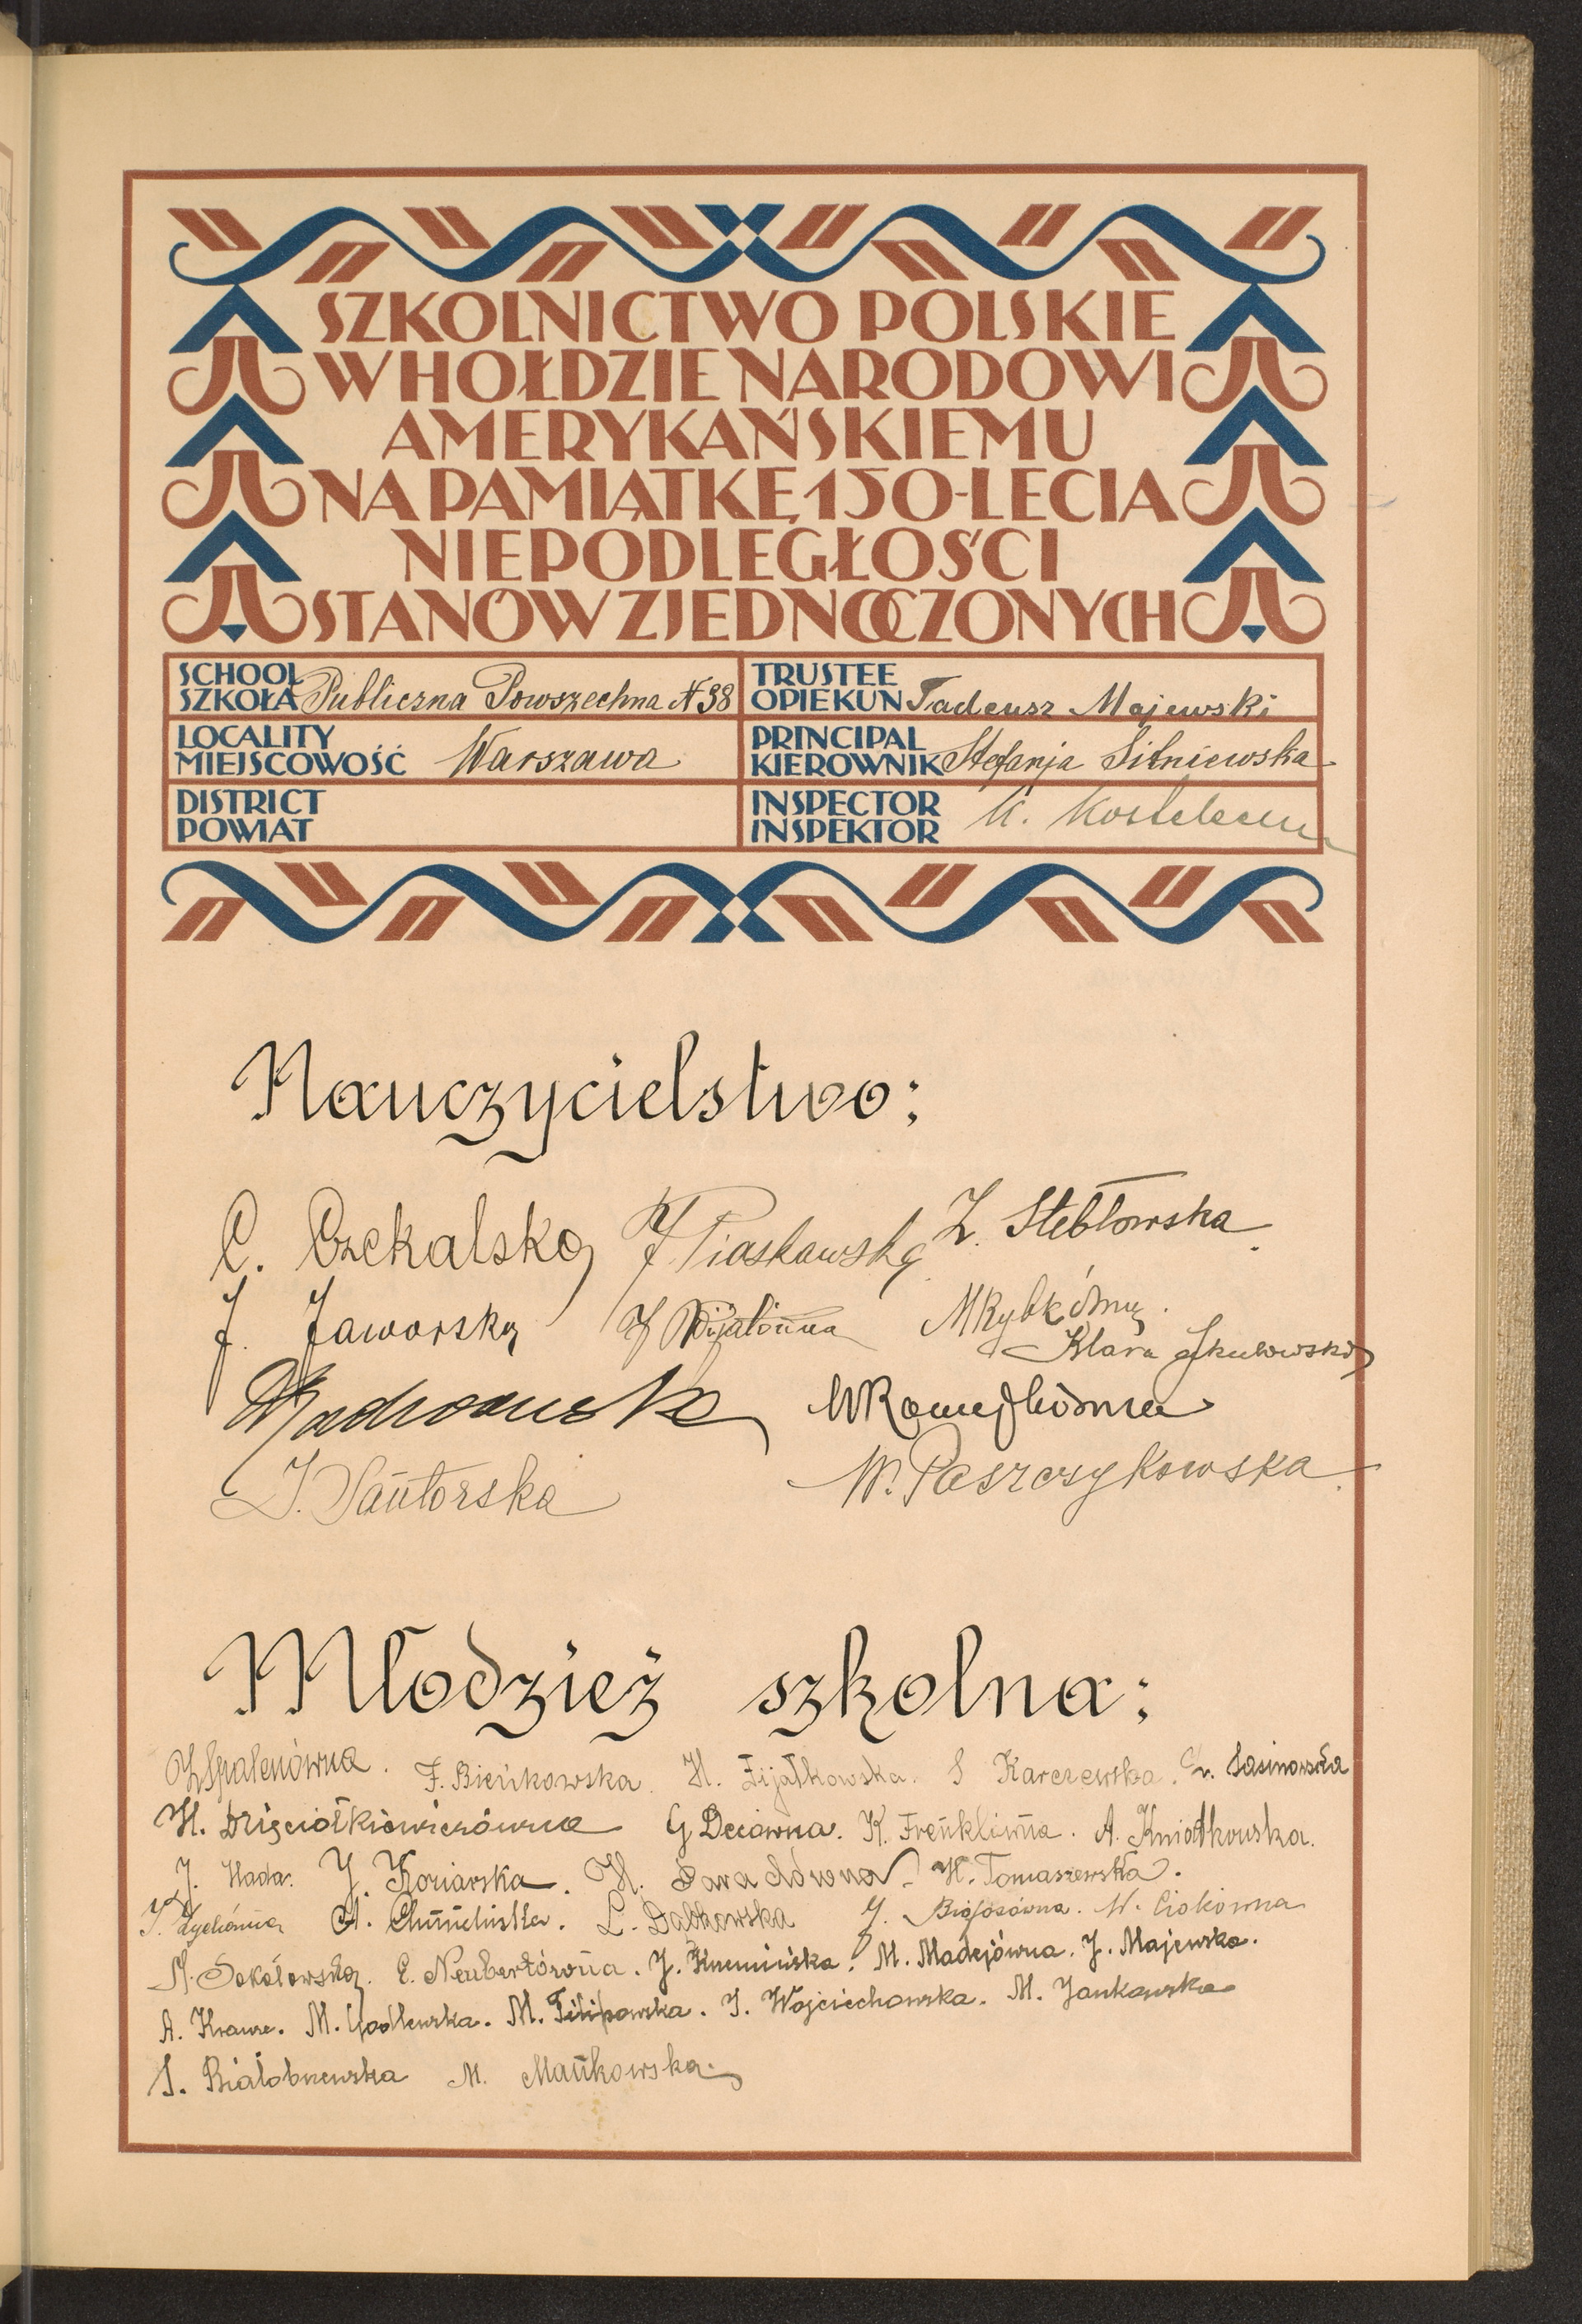 SZKOLNICTWO POLSKIE
W HOŁDZIE NARODOWI
AMERYKAŃSKIEMU
NA PAMIĄTKĘ 150-LECIA
NIEPODLEGŁOŚCI
STANÓW ZJEDNOCZONYCH
SCHOOL
SZKOŁA Publiczna Powszechna № 38
TRUSTEE
OPIEKUN Tadeusz Majewski
LOCALITY
MIEJSCOWOŚĆ Warszawa
PRINCIPAL
KIEROWNIK Stefanja Silniewska
DISTRICT
POWIAT
INSPECTOR
INSPEKTOR K.
Nauczycielstwo:
C. Czekalska J. Piaskowska Z. Stebłowska
J. Jaworska M Rybkówna
Klara
J. Santorska W. Paszczykowska
Młodzież szkolna:
F. Bieńkowska. H. Fijałkowska. S Karczewska. Sasinowska
H. Dzięciołkiewiczówna G Decówna. K. Frenklówna. A. Kniatkowska.
J. Hada. J. Koziarska. H. H. Tomaszewska.
A. L. Dąbkowska J. W. Ciokówna
M. Sokołowska. E. Neubertówna. J. Krzemińska. M. Madejówna. J. Majewska.
A. Krause. M. Godlewska. M. Filipowska. J. Wojciechowska. M. Jankowska
S. Białobrzewska M. Mańkowska.